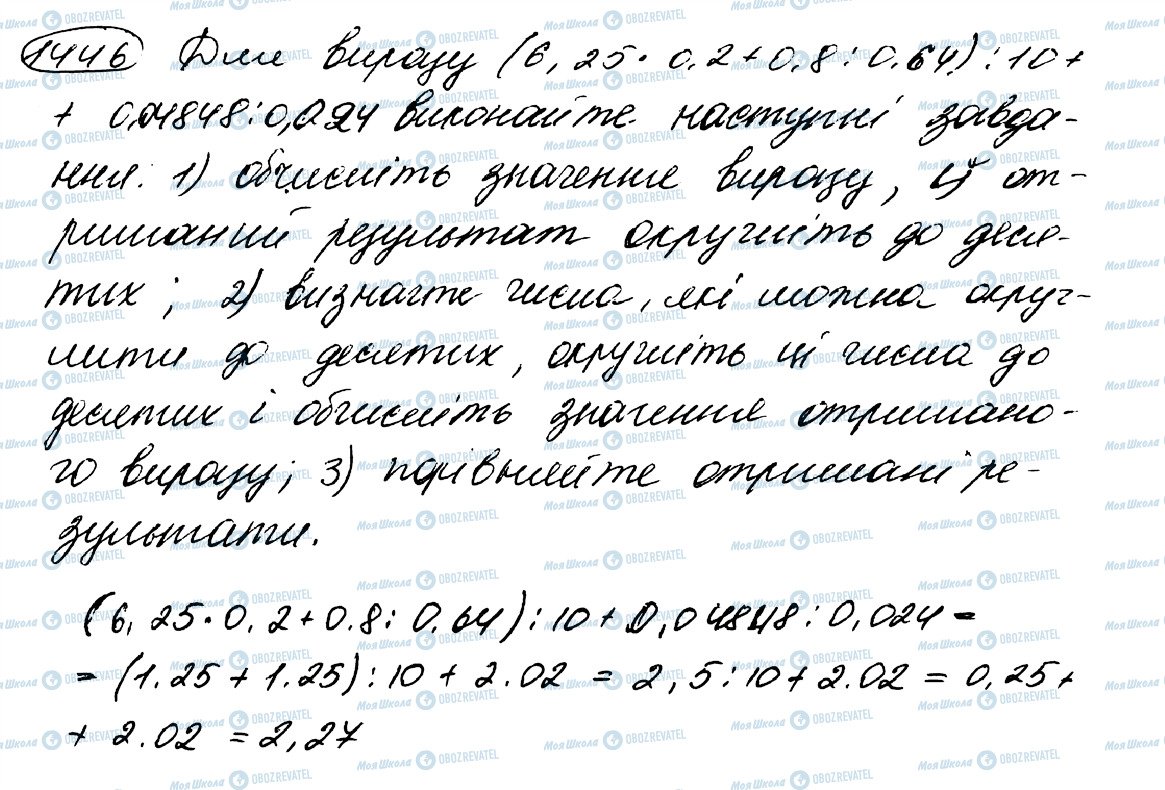 1446 Для виразу (6,25·0.2+0,8:0.64):10+
+ 0,04848:0,024 виконайте наступні завда-
ння. 1) обчисліть значення виразу, й от-
риманий результат округліть до деся-
тих; 2) визначте числа, які можна округ-
лити до десятих, округліть ці числа до
десятих і обчисліть значення отримано-
го виразу; 3) порівняйте отримані ре-
зультати.
(6,25·0,2+0.8:0,64):10+0,04848:0,024=
=(1.25+1.25):10+2.02=2,5:10+2.02=0,25+
+2.02=2,27